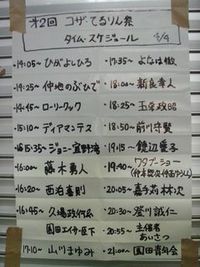 第2回 コザ・てるりん祭
タイム・スケジュール 4/4
・14:05〜 ひがよしひろ
・14:25〜 仲地のぶひで
・14:45〜 ローリークック
・15:10〜 ディアマンテス
・15:35〜 ジョニー宜野湾
・16:00〜 藤木勇人
・16:20〜 西泊喜則
・16:45〜 久場政行
園田エイサー
17:10〜 山川まゆみ
・17:35〜 よなは徹
・18:00〜 新良幸人
・18:25〜 玉栄政昭
・18:50〜 前川守賢
・19:15〜 饒辺愛子
・19:40〜 ワタブーショー
・20:05〜 嘉手苅林次
・20:30〜 登川誠仁
・20:55〜 主催者
あいさつ
・21:00〜 園田青年会